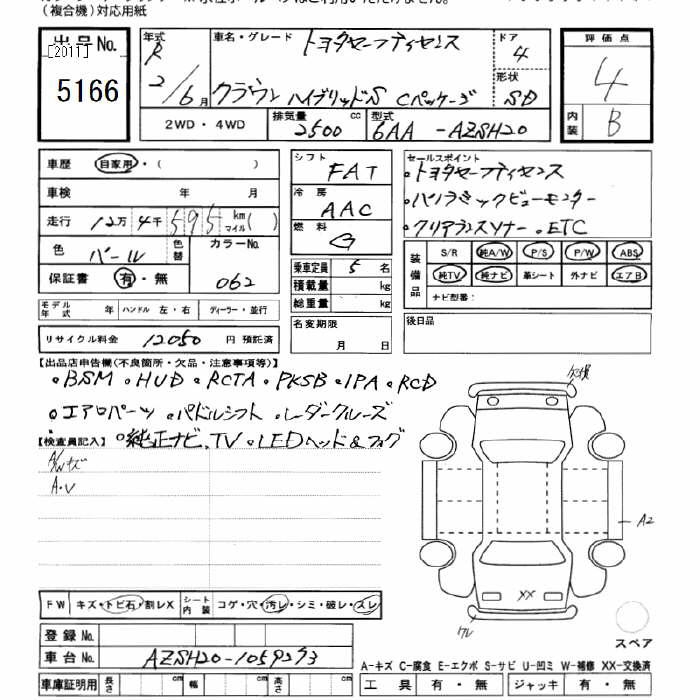 (複合機)対応用紙
出品No. [2011] 5166
年式 R 2/6月
車名・グレード トヨタセーフティセンス
クラウン ハイブリッドS Cパッケージ
ドア 4
形状 SD
評価点 4
内装 B
2WD・4WD 排気量 2500 cc 型式 6AA-AZSH20
車歴 自家用・( )
車検 年 月
走行 12万 4千 595 km マイル( )
色 パール 色替 カラーNo. 062
保証書 有・無
モデル年式 年 ハンドル 左・右 ディーラー・並行
リサイクル料金 12050 円 預託済
シフト FAT
冷房 AAC
燃料 G
乗車定員 5 名
積載量 kg
総重量 kg
名変期限 月 日
セールスポイント
・トヨタセーフティセンス
・パノラミックビューモニター
・クリアランスソナー ・ETC
装備品 S/R 純A/W P/S P/W ABS
純TV 純ナビ 革シート 外ナビ エアB
ナビ型番:
後日品
【出品店申告欄(不良箇所・欠品・注意事項等)】
・BSM ・HUD ・RCTA ・PKSB ・IPA ・RCD
・エアロパーツ ・パドルシフト ・レーダークルーズ
・純正ナビ、TV ・LEDヘッド&フォグ
【検査員記入】
A/Wキズ
A・V
欠損
A2
XX
ワレ
スペア
FW キズ・トビ石・割レX シート内装 コゲ・穴・汚レ・シミ・破レ・スレ
登録No.
車台No. AZSH20-1059293
車庫証明用 長さ cm 幅 cm 高さ cm
A-キズ C-腐食 E-エクボ S-サビ U-凹ミ W-補修 XX-交換済
工具 有・無 ジャッキ 有・無